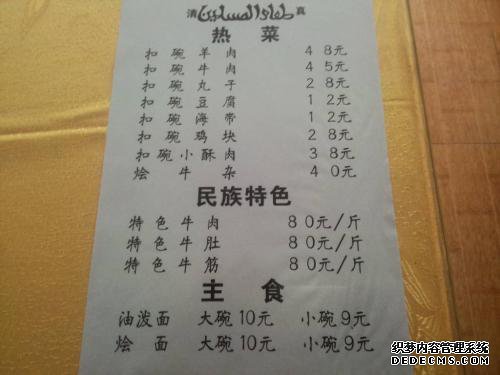 清 طعام المسلمين 真
热菜
扣碗羊肉 48元
扣碗牛肉 45元
扣碗丸子 28元
扣碗豆腐 12元
扣碗海带 12元
扣碗鸡块 28元
扣碗小酥肉 38元
烩牛杂 40元
民族特色
特色牛肉 80元/斤
特色牛肚 80元/斤
特色牛筋 80元/斤
主食
油泼面 大碗10元 小碗9元
烩面 大碗10元 小碗9元
脚本内容管理系统
www.ASPku.com